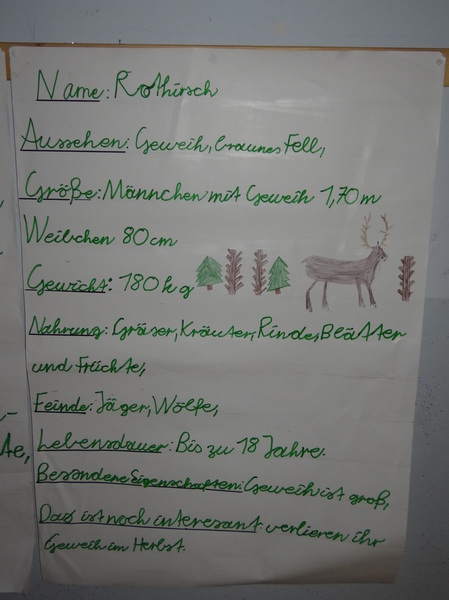 Name: Rothirsch
Aussehen: Geweih, braunes Fell,
Größe: Männchen mit Geweih 1,70 m
Weibchen 80 cm
Gewicht: 180 kg
Nahrung: Gräser, Kräuter, Rinde, Blätter
und Früchte,
Feinde: Jäger, Wölfe,
Lebensdauer: Bis zu 18 Jahre.
Besondere Eigenschaften: Geweih ist groß,
Das ist noch interesant verlieren ihr
Geweih im Herbst.